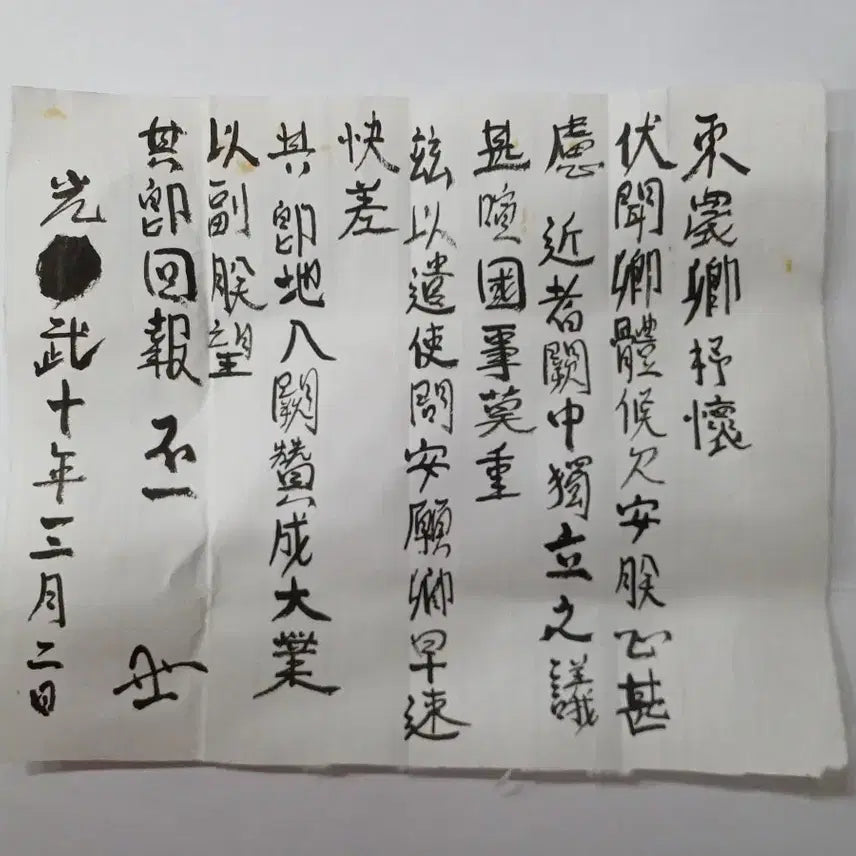 東崗卿抒懷
伏聞卿體候欠安朕心甚
慮 近者闕中獨立之議
甚喧國事莫重
玆以遣使問安願卿早速
快差
其卽地入闕贊成大業
以副朕望
其卽回報 不一
光武十年三月二日